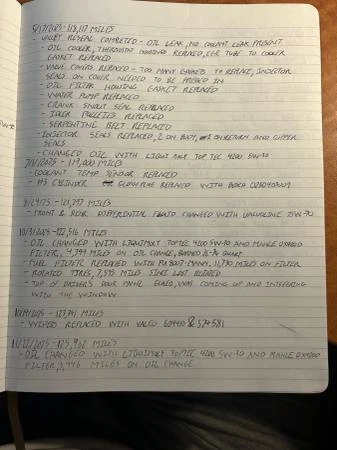 5/17/2025 - 118,117 MILES
- VALLEY RESEAL COMPLETED - OIL LEAK, NO COOLANT LEAK PRESENT
- OIL COOLER, THERMOSTAT HOUSING REPLACED, EGR TUBE TO COOLER
GASKET REPLACED
- VALVE COVERS REPLACED - TOO MANY GASKETS TO REPLACE, INJECTOR
SEALS ON COVER NEEDED TO BE PRESSED IN
- OIL FILTER HOUSING GASKET REPLACED
- WATER PUMP REPLACED
- CRANK SNOUT SEAL REPLACED
- IDLER PULLEYS REPLACED
- SERPENTINE BELT REPLACED
- INJECTOR SEALS REPLACED, 2 ON BODY, ON RETURN AND UPPER
SEALS
- CHANGED OIL WITH LIQUI MOLY TOP TEC 4200 5W-30
119,000 MILES
- COOLANT TEMP SENSOR REPLACED
- #3 CYLINDER GLOW PLUG REPLACED WITH BOSCH
121,297 MILES
- FRONT & REAR DIFFERENTIAL FLUID CHANGED WITH VALVOLINE 75W-90
122,516 MILES
- OIL CHANGED WITH LIQUIMOLY TOPTEC 4200 5W-30 AND MAHLE
FILTER, 4,399 MILES ON OIL CHANGE, BURNED QUART
- FUEL FILTER REPLACED WITH 11,730 MILES ON FILTER
- ROTATED TIRES, 7,515 MILES SINCE LAST ROTATED
- TOP OF DRIVER'S DOOR PANEL GLUED, WAS COMING UP AND INTEFERING
WITH THE WINDOW
MILES
- WIPERS REPLACED WITH VALEO 604410 & 574581
11/22/2025 - 125,962 MILES
- OIL CHANGED WITH LIQUIMOLY TOPTEC 4200 5W-30 AND MAHLE
FILTER, 3,446 MILES ON OIL CHANGE